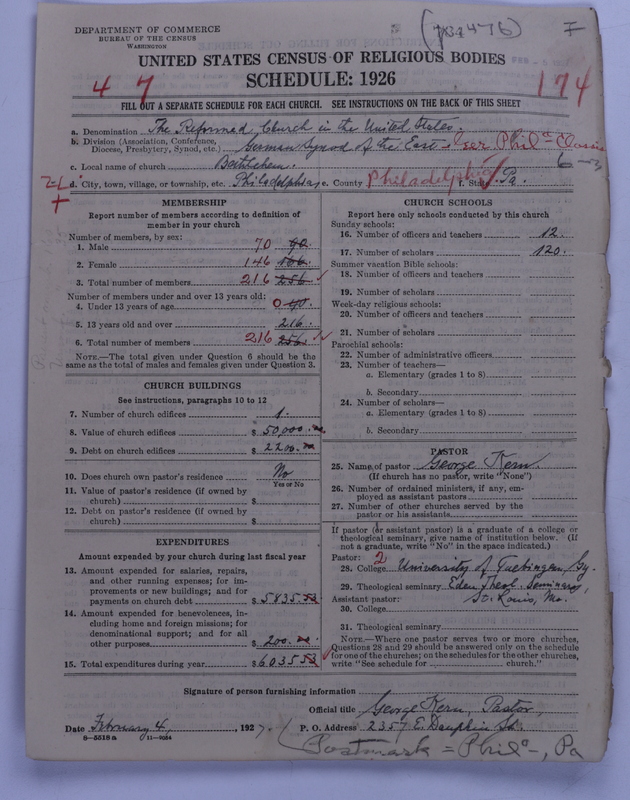 DEPARTMENT OF COMMERCE
BUREAU OF THE CENSUS
WASHINGTON
UNITED STATES CENSUS OF RELIGIOUS BODIES
SCHEDULE: 1926
4 7
174
FILL OUT A SEPARATE SCHEDULE FOR EACH CHURCH. SEE INSTRUCTIONS ON THE BACK OF THIS SHEET
a. Denomination The Reformed Church in the United States.
b. Division (Association, Conference, Diocese, Presbytery, Synod, etc.) German Synod of the East Phila Classis
c. Local name of church Bethlehem.
d. City, town, village, or township, etc. Philadelphia, e. County Philadelphia f. State Pa.
MEMBERSHIP
Report number of members according to definition of
member in your church
Number of members, by sex:
1. Male 70 90
2. Female 146 166
3. Total number of members 216 256
Number of members under and over 13 years old:
4. Under 13 years of age 0 40
5. 13 years old and over 216
6. Total number of members 216 256
NOTE.—The total given under Question 6 should be the
same as the total of males and females given under Question 3.
CHURCH BUILDINGS
See instructions, paragraphs 10 to 12
7. Number of church edifices 1
8. Value of church edifices $ 50,000
9. Debt on church edifices $ 2200
10. Does church own pastor's residence No
Yes or No
11. Value of pastor's residence (if owned by
church) $
12. Debt on pastor's residence (if owned by
church) $
EXPENDITURES
Amount expended by your church during last fiscal year
13. Amount expended for salaries, repairs,
and other running expenses; for im-
provements or new buildings; and for
payments on church debt $ 5835.53
14. Amount expended for benevolences, in-
cluding home and foreign missions; for
denominational support; and for all
other purposes $ 200.
15. Total expenditures during year $ 6035.53
CHURCH SCHOOLS
Report here only schools conducted by this church
Sunday schools:
16. Number of officers and teachers 12.
17. Number of scholars 120.
Summer vacation Bible schools:
18. Number of officers and teachers
19. Number of scholars
Week-day religious schools:
20. Number of officers and teachers
21. Number of scholars
Parochial schools:
22. Number of administrative officers
23. Number of teachers—
a. Elementary (grades 1 to 8)
b. Secondary
24. Number of scholars—
a. Elementary (grades 1 to 8)
b. Secondary
PASTOR
25. Name of pastor George Kern.
(If church has no pastor, write "None")
26. Number of ordained ministers, if any, em-
ployed as assistant pastors
27. Number of other churches served by the
pastor or his assistants
If pastor (or assistant pastor) is a graduate of a college or
theological seminary, give name of institution below. (If
not a graduate, write "No" in the space indicated.)
Pastor: 2
28. College University of Tuebingen, Gy.
29. Theological seminary Eden Theol. Seminary,
Assistant pastor: St. Louis, Mo.
30. College
31. Theological seminary
NOTE.—Where one pastor serves two or more churches,
Questions 28 and 29 should be answered only on the schedule
for one of the churches; on the schedules for the other churches,
write "See schedule for church."
Signature of person furnishing information
Official title George Kern, Pastor,
Date February 4, 1927. P. O. Address 2357 E. Dauphin St.
8—5518a 11—9054
Postmark = Phila, Pa